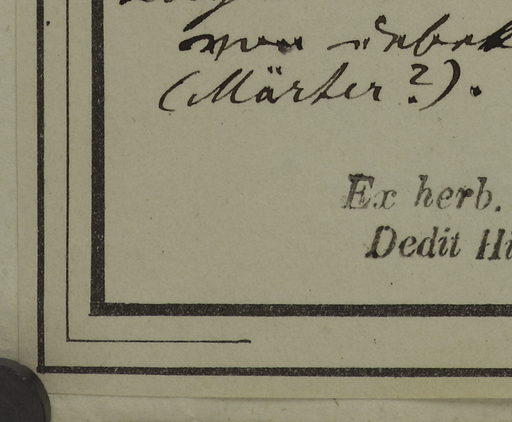 von
(Märter?).
Ex herb.
Dedit Hi